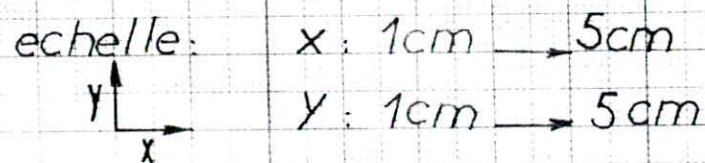 echelle: x: 1cm → 5cm
y y: 1cm → 5cm
x